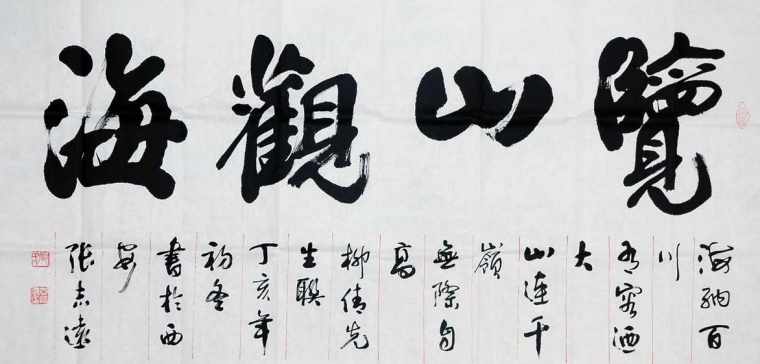 覽山觀海
海納百
川
有容迺
大
山連千
嶺
無際自
高
柳倩先
生聯
丁亥年
初冬
書於西
安
張志遠